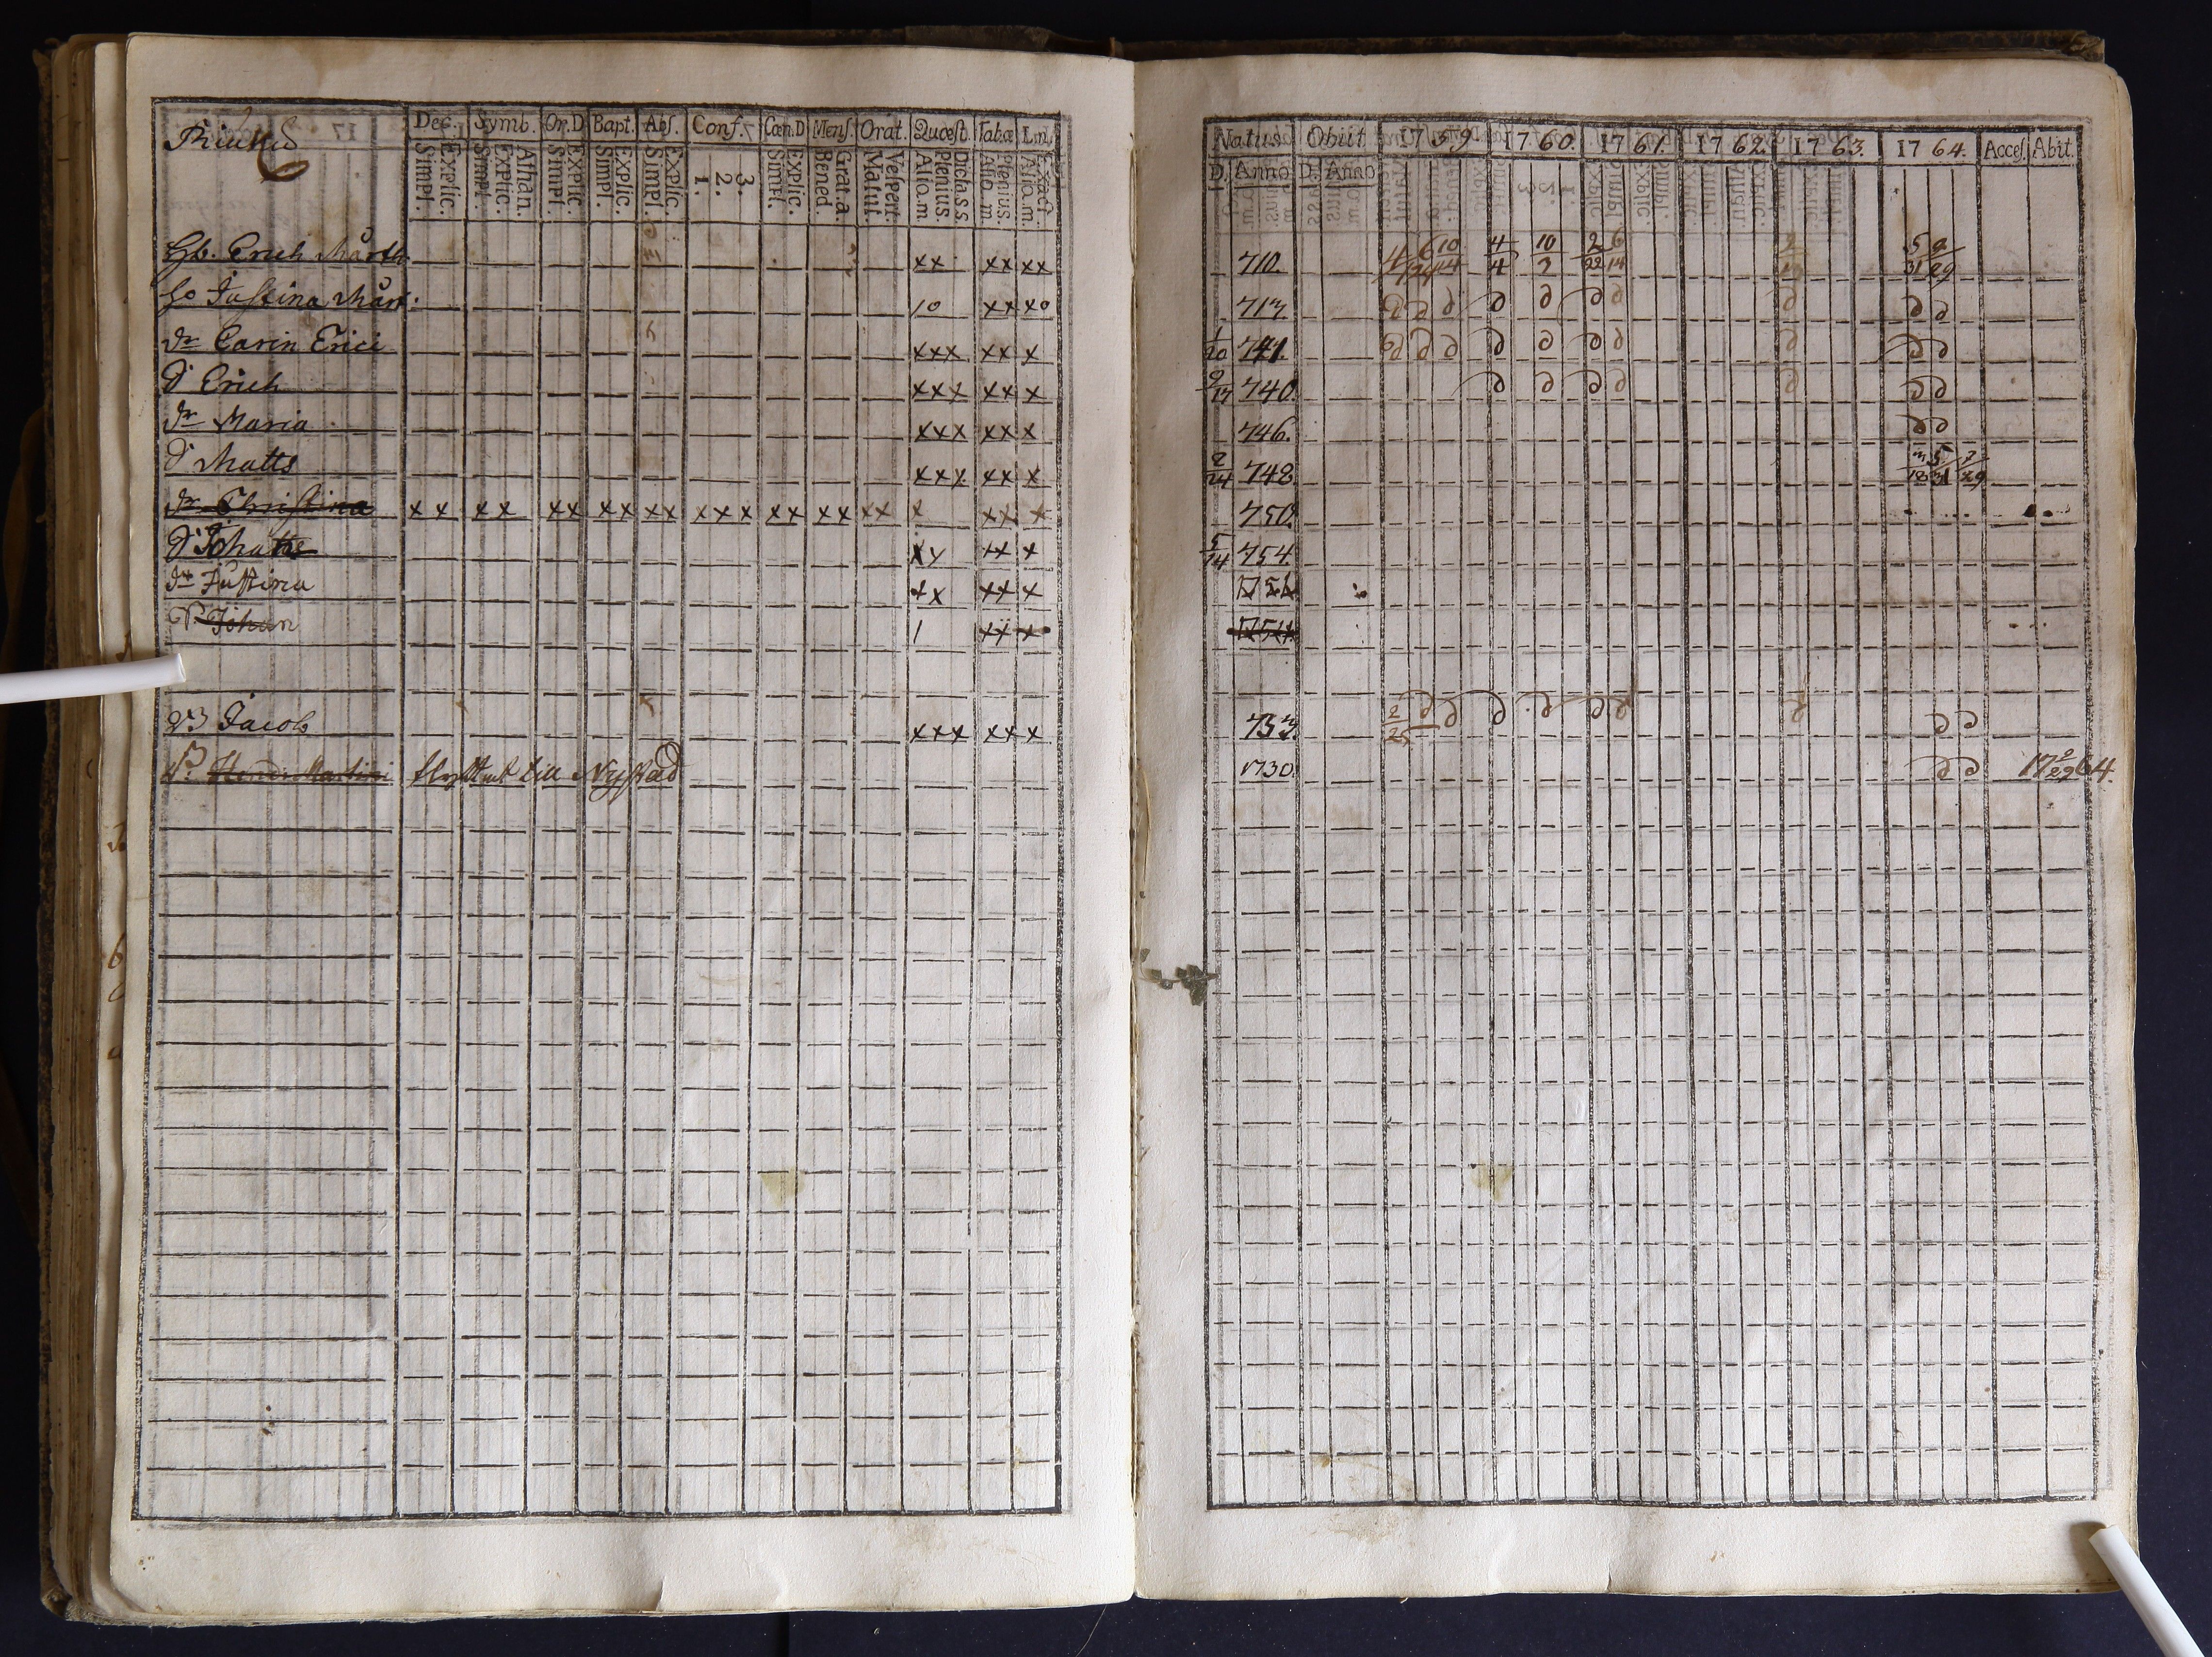 Dec. Symb. Or.D Bapt. Abs. Conf. Cœn.D Mens. Orat. Quæst. Tabæ L.ni.
Explic. Simpl. Athan. Explic. Simpl. Explic. Simpl. Explic. Simpl. Explic. Simpl. 3. 2. 1. Explic. Simpl. Grat.a. Bened. Vespert. Matut. Dictass. Plenius. Alio.m. Plenius. Alio.m. Exact. Alio.m.
Natus Obiit 17 59 17 60. 17 61. 17 62. 17 63. 17 64. Acces. Abit.
D. Anno D. Anno
Hb. Erich Mårth. xx xx xx 710. 4/4 10/2 2/22 6/14 5/31
ho Justina Mårt. 10 xx xo 713
dr Carin Erici xxx xx x 1/20 741.
d. Erich xxx xx x 740.
dr Maria xxx xx x 746.
d. Matts xxx xx x 748
dr Christina xx xx xx xx xx xxx xx xx xx x xx x 750.
d. xy xx x 5/14 754.
dr Justina xx xx x
Johan 1 xx x 1754.
Jacob xxx xx x 2/25
flyttat till Nystad 1730.